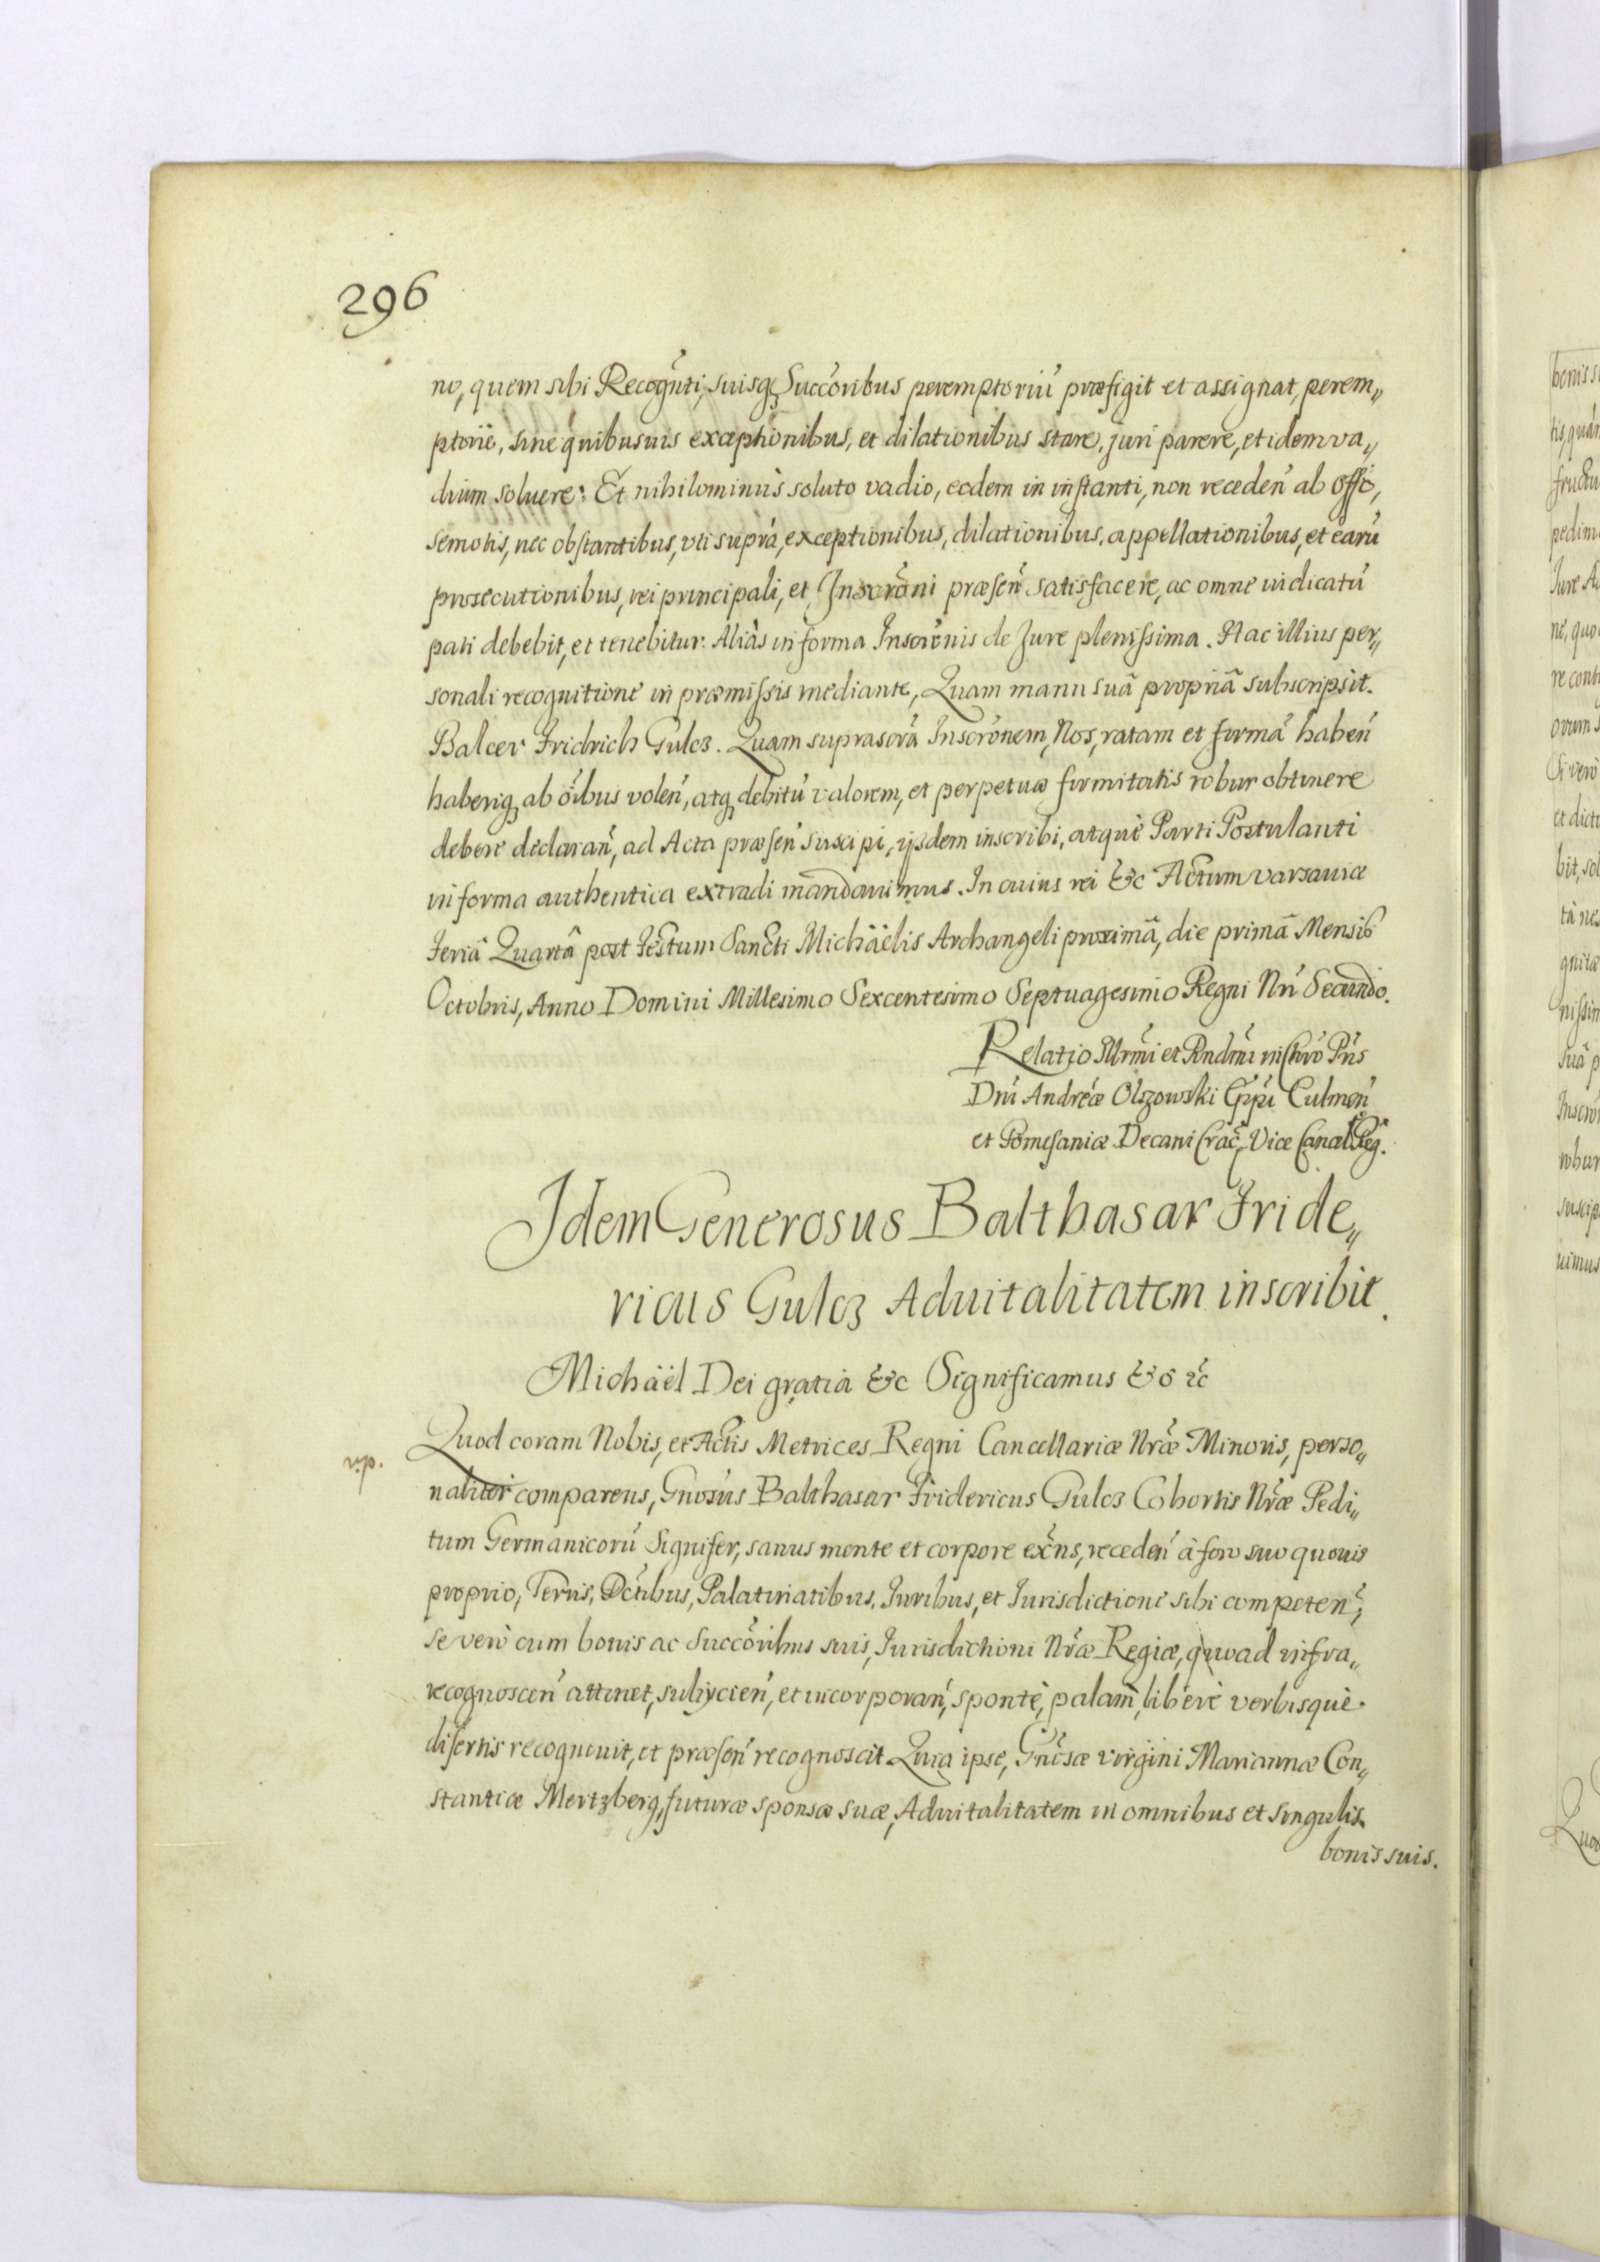 296
no, quem sibi Recogn̄ti, suisq₃ Succōribus peremptoriū præfigit et assignat, perem„
ptorie, sine quibusuis exceptionibus, et dilationibus stare, juri parere, et idem va„
dium soluere: Et nihilominùs soluto vadio, eodem in instanti, non receden̄ ab offo,
semotis, nec obstantibus, vti suprà, exceptionibus, dilationibus, appellationibus, et earū
prosecutionibus, rei principali, et Inscrōni præsen̄ satisfacere, ac omne iudicatū
pati debebit, et tenebitur. Aliàs in forma Inscrōnis de Jure plenissima. Hac illius per„
sonali recognitione in præmissis mediante, Quam manu suâ propriâ subscripsit.
Balcer Fridrich Gulcz. Quam suprascrā Inscrōnem, Nos, ratam et firmā haben̄
haberiq₃ ab ōibus volen̄, atq₃ debitū valorem, et perpetuæ firmitatis robur obtinere
debere declaran̄, ad Acta præsen̄ suscipi, ijsdem inscribi, atque Parti Postulanti
in forma authentica extradi mandauimus. In cuius rei &c Actum Varsauiæ
Feriâ Quartâ post Festum Sancti Michäëlis Archangeli proximâ, die primâ Mensis
Octobris, Anno Domini Millesimo Sexcentesimo Septuagesimo Regni Nrī Secundo.
Relatio Illrmi et Rndmi in Chro Pris
Dni Andreæ Olszowski Eppi Culmen̄
et Pomesaniæ Decani Crac, Vice Cancel Reg.
Idem Generosus Balthasar Fride„
ricus Gulcz Aduitalitatem inscribit.
Michäël Dei gratia &c Significamus &c &c
Quod coram Nobis, et Actis Metrices Regni Cancellariæ Nræ Minoris, perso„
naliter comparens, Gnosus Balthasar Fridericus Gulcz Cohortis Nræ Pedi„
tum Germanicorū Signifer, sanus mente et corpore exn̄s, receden̄ à foro suo quouis
proprio, Terris, Dctibus, Palatinatibus, Iuribus, et Iurisdictione sibi competen̄,
se verò cum bonis ac Succōribus suis, Iurisdictioni Nræ Regiæ, quoad infra„
recognoscen̄ attinet, subijcien̄, et incorporan̄, spontè, palam, liberè verbisquè
disertis recognouit, et præsen̄ recognoscit Quia ipse, Gnosæ virgini Mariannæ Con„
stantiæ Mertzberg, futuræ sponsæ suæ, Aduitalitatem in omnibus et singulis
bonis suis.